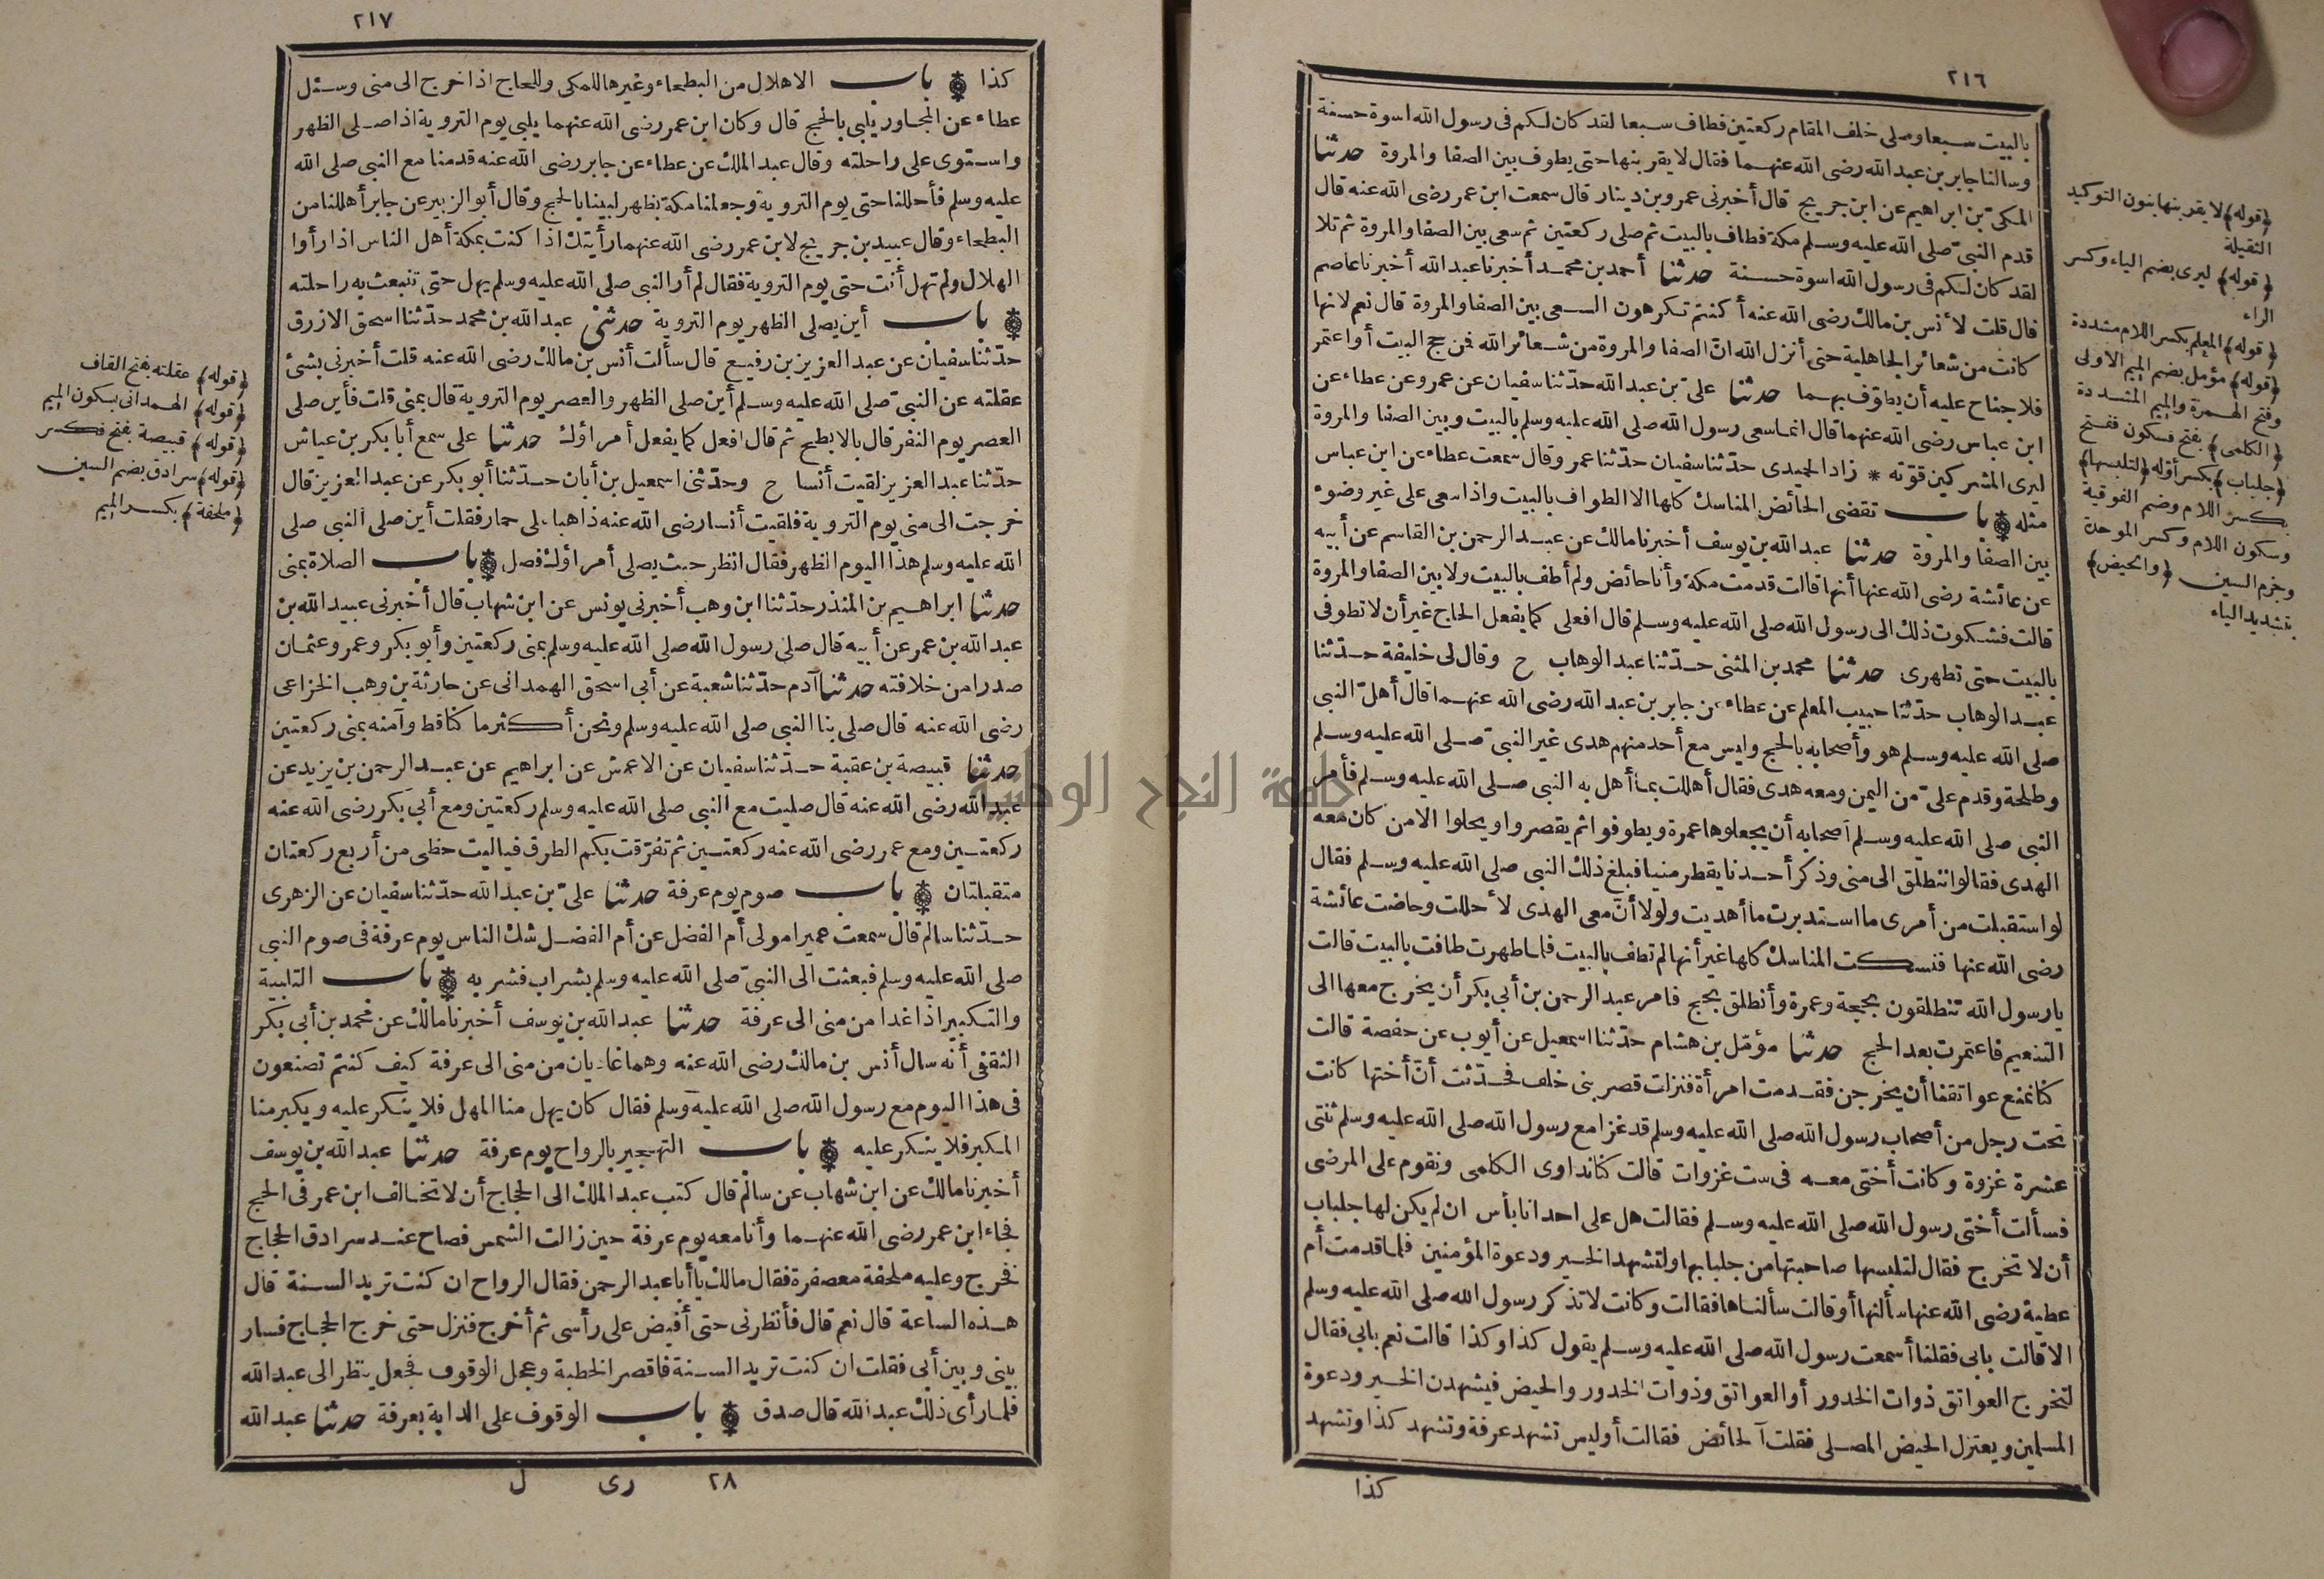 ٢١٦
بالبيت سبعا وصلى خلف المقام ركعتين فطاف سبعا لقد كان لكم فى رسول الله اسوة حسنة
وسالنا جابر بن عبد الله رضى الله عنهما فقال لا يقربنها حتى يطوف بين الصفا والمروة حدثنا
المكىّ بن ابراهيم عن ابن جريج قال أخبرنى عمرو بن دينار قال سمعت ابن عمر رضى الله عنه قال
قدم النبىّ صلى الله عليه وسلم مكة فطاف بالبيت ثم صلى ركعتين ثم سعى بين الصفا والمروة ثم تلا
لقد كان لكم فى رسول الله اسوة حسنة حدثنا أحمد بن محمد أخبرنا عبد الله أخبرنا عاصم
قال قلت لأنس بن مالك رضى الله عنه أكنتم تكرهون السعى بين الصفا والمروة قال نعم لانها
كانت من شعائر الجاهلية حتى أنزل الله انّ الصفا والمروة من شعائر الله فمن حج البيت أو اعتمر
فلا جناح عليه أن يطوّف بهما حدثنا علىّ بن عبد الله حدّثنا سفيان عن عمرو عن عطاء عن
ابن عباس رضى الله عنهما قال انما سعى رسول الله صلى الله عليه وسلم بالبيت وبين الصفا والمروة
ليرى المشركين قوّته * زاد الحميدى حدّثنا سفيان حدّثنا عمر وقال سمعت عطاء عن ابن عباس
مثله باب تقضى الحائض المناسك كلها الا الطواف بالبيت واذا سعى على غير وضوء
بين الصفا والمروة حدثنا عبد الله بن يوسف أخبرنا مالك عن عبد الرحمن بن القاسم عن أبيه
عن عائشة رضى الله عنها أنها قالت قدمت مكة وأنا حائض ولم أطف بالبيت ولا بين الصفا والمروة
قالت فشكوت ذلك الى رسول الله صلى الله عليه وسلم قال افعلى كما يفعل الحاج غير أن لا تطوفى
بالبيت حتى تطهرى حدثنا محمد بن المثنى حدّثنا عبد الوهاب ح وقال لى خليفة حدّثنا
عبد الوهاب حدّثنا حبيب المعلم عن عطاء عن جابر بن عبد الله رضى الله عنهما قال أهلّ النبى
صلى الله عليه وسلم هو وأصحابه بالحج وليس مع أحد منهم هدى غير النبىّ صلى الله عليه وسلم
وطلحة وقدم علىّ من اليمن ومعه هدى فقال أهللت بما أهل به النبى صلى الله عليه وسلم فأمر
النبى صلى الله عليه وسلم أصحابه أن يجعلوها عمرة ويطوفوا ثم يقصروا ويحلوا الا من كان معه
الهدى فقالوا ننطلق الى منى وذكر أحدنا يقطر منيا فبلغ ذلك النبى صلى الله عليه وسلم فقال
لو استقبلت من أمرى ما استدبرت ما أهديت ولولا أنّ معى الهدى لأحللت وحاضت عائشة
رضى الله عنها فنسكت المناسك كلها غير أنها لم تطف بالبيت فلما طهرت طافت بالبيت قالت
يا رسول الله تنطلقون بحجة وعمرة وأنطلق بحج فامر عبد الرحمن بن أبى بكر أن يخرج معها الى
التنعيم فاعتمرت بعد الحج حدثنا مؤمّل بن هشام حدّثنا اسمعيل عن أيوب عن حفصة قالت
كنا نمنع عواتقنا أن يخرجن فقدمت امرأة فنزلت قصر بنى خلف فحدّثت أنّ أختها كانت
تحت رجل من أصحاب رسول الله صلى الله عليه وسلم قد غزا مع رسول الله صلى الله عليه وسلم ثنتى
عشرة غزوة وكانت أختى معه فى ست غزوات قالت كنا نداوى الكلمى ونقوم على المرضى
فسألت أختى رسول الله صلى الله عليه وسلم فقالت هل على احدانا بأس ان لم يكن لها جلباب
أن لا تخرج فقال لتلبسها صاحبتها من جلبابها ولتشهد الخير ودعوة المؤمنين فلما قدمت أم
عطية رضى الله عنها سألنها أو قالت سألناها فقالت وكانت لا تذكر رسول الله صلى الله عليه وسلم
الا قالت بابى فقلنا أسمعت رسول الله صلى الله عليه وسلم يقول كذا وكذا قالت نعم بابى فقال
لتخرج العواتق ذوات الخدور أو العواتق وذوات الخدور والحيض فيشهدن الخير ودعوة
المسلمين ويعتزل الحيض المصلى فقلت آلحائض فقالت أوليس تشهد عرفة وتشهد كذا وتشهد
كذا
(قوله) لا يقربنها بنون التوكيد
الثقيلة
(قوله) ليرى بضم الياء وكسر
الراء
(قوله) المعلم بكسر اللام مشددة
(قوله) مؤمل بضم الميم الاولى
وفتح الهمزة والميم المشددة
(الكلمى) بفتح فسكون ففتح
(جلباب) بكسر أوّله (لتلبسها)
بكسر اللام وضم الفوقية
وسكون اللام وكسر الموحدة
وجزم السين (والحيض)
بتشديد الياء
٢١٧
كذا باب الاهلال من البطحاء وغيرها للمكى وللحاج اذا خرج الى منى وسئل
عطاء عن المجاور يلبى بالحج قال وكان ابن عمر رضى الله عنهما يلبى يوم التروية اذا صلى الظهر
واستوى على راحلته وقال عبد الملك عن عطاء عن جابر رضى الله عنه قدمنا مع النبى صلى الله
عليه وسلم فأحللنا حتى يوم التروية وجعلنا مكة بظهر لبينا بالحج وقال أبو الزبير عن جابر أهللنا من
البطحاء وقال عبيد بن جريج لابن عمر رضى الله عنهما رأيتك اذا كنت بمكة أهل الناس اذا رأوا
الهلال ولم تهل أنت حتى يوم التروية فقال لم أر النبى صلى الله عليه وسلم يهل حتى تنبعث به راحلته
باب أين يصلى الظهر يوم التروية حدثنى عبد الله بن محمد حدّثنا اسحق الازرق
حدّثنا سفيان عن عبد العزيز بن رفيع قال سألت أنس بن مالك رضى الله عنه قلت أخبرنى بشئ
عقلته عن النبىّ صلى الله عليه وسلم أين صلى الظهر والعصر يوم التروية قال بمنى قلت فأين صلى
العصر يوم النفر قال بالابطح ثم قال افعل كما يفعل أمراؤك حدثنا على سمع أبا بكر بن عياش
حدّثنا عبد العزيز لقيت أنسا ح وحدّثنى اسمعيل بن أبان حدّثنا أبو بكر عن عبد العزيز قال
خرجت الى منى يوم التروية فلقيت أنسا رضى الله عنه ذاهبا على حمار فقلت أين صلى النبى صلى
الله عليه وسلم هذا اليوم الظهر فقال انظر حيث يصلى أمراؤك فصل باب الصلاة بمنى
حدثنا ابراهيم بن المنذر حدّثنا ابن وهب أخبرنى يونس عن ابن شهاب قال أخبرنى عبيد الله بن
عبد الله بن عمر عن أبيه قال صلى رسول الله صلى الله عليه وسلم بمنى ركعتين وأبو بكر وعمر وعثمان
صدرا من خلافته حدثنا آدم حدّثنا شعبة عن أبى اسحق الهمدانى عن حارثة بن وهب الخزاعى
رضى الله عنه قال صلى بنا النبى صلى الله عليه وسلم ونحن أكثر ما كنا قط وآمنه بمنى ركعتين
حدثنا قبيصة بن عقبة حدّثنا سفيان عن الاعمش عن ابراهيم عن عبد الرحمن بن يزيد عن
عبد الله رضى الله عنه قال صليت مع النبى صلى الله عليه وسلم ركعتين ومع أبى بكر رضى الله عنه
ركعتين ومع عمر رضى الله عنه ركعتين ثم تفرّقت بكم الطرق فياليت حظى من أربع ركعتان
متقبلتان باب صوم يوم عرفة حدثنا علىّ بن عبد الله حدّثنا سفيان عن الزهرى
حدّثنا سالم قال سمعت عميرا مولى أم الفضل عن أم الفضل شك الناس يوم عرفة فى صوم النبى
صلى الله عليه وسلم فبعثت الى النبىّ صلى الله عليه وسلم بشراب فشربه باب التلبية
والتكبير اذا غدا من منى الى عرفة حدثنا عبد الله بن يوسف أخبرنا مالك عن محمد بن أبى بكر
الثقفى أنه سال أنس بن مالك رضى الله عنه وهما غاديان من منى الى عرفة كيف كنتم تصنعون
فى هذا اليوم مع رسول الله صلى الله عليه وسلم فقال كان يهل منا المهل فلا ينكر عليه ويكبر منا
المكبر فلا ينكر عليه باب التهجير بالرواح يوم عرفة حدثنا عبد الله بن يوسف
أخبرنا مالك عن ابن شهاب عن سالم قال كتب عبد الملك الى الحجاج أن لا تخالف ابن عمر فى الحج
فجاء ابن عمر رضى الله عنهما وأنا معه يوم عرفة حين زالت الشمس فصاح عند سرادق الحجاج
فخرج وعليه ملحفة معصفرة فقال مالك يا أبا عبد الرحمن فقال الرواح ان كنت تريد السنة قال
هذه الساعة قال نعم قال فأنظرنى حتى أفيض على رأسى ثم أخرج فنزل حتى خرج الحجاج فسار
بينى وبين أبى فقلت ان كنت تريد السنة فاقصر الخطبة وعجل الوقوف فجعل ينظر الى عبد الله
فلما رأى ذلك عبد الله قال صدق باب الوقوف على الدابة بعرفة حدثنا عبد الله
٢٨ رى ل
(قوله) عقلته بفتح القاف
(قوله) الهمدانى بسكون الميم
(قوله) قبيصة بفتح فكسر
(قوله) سرادق بضم السين
(ملحفة) بكسر الميم
جامعة النجاح الوطنية